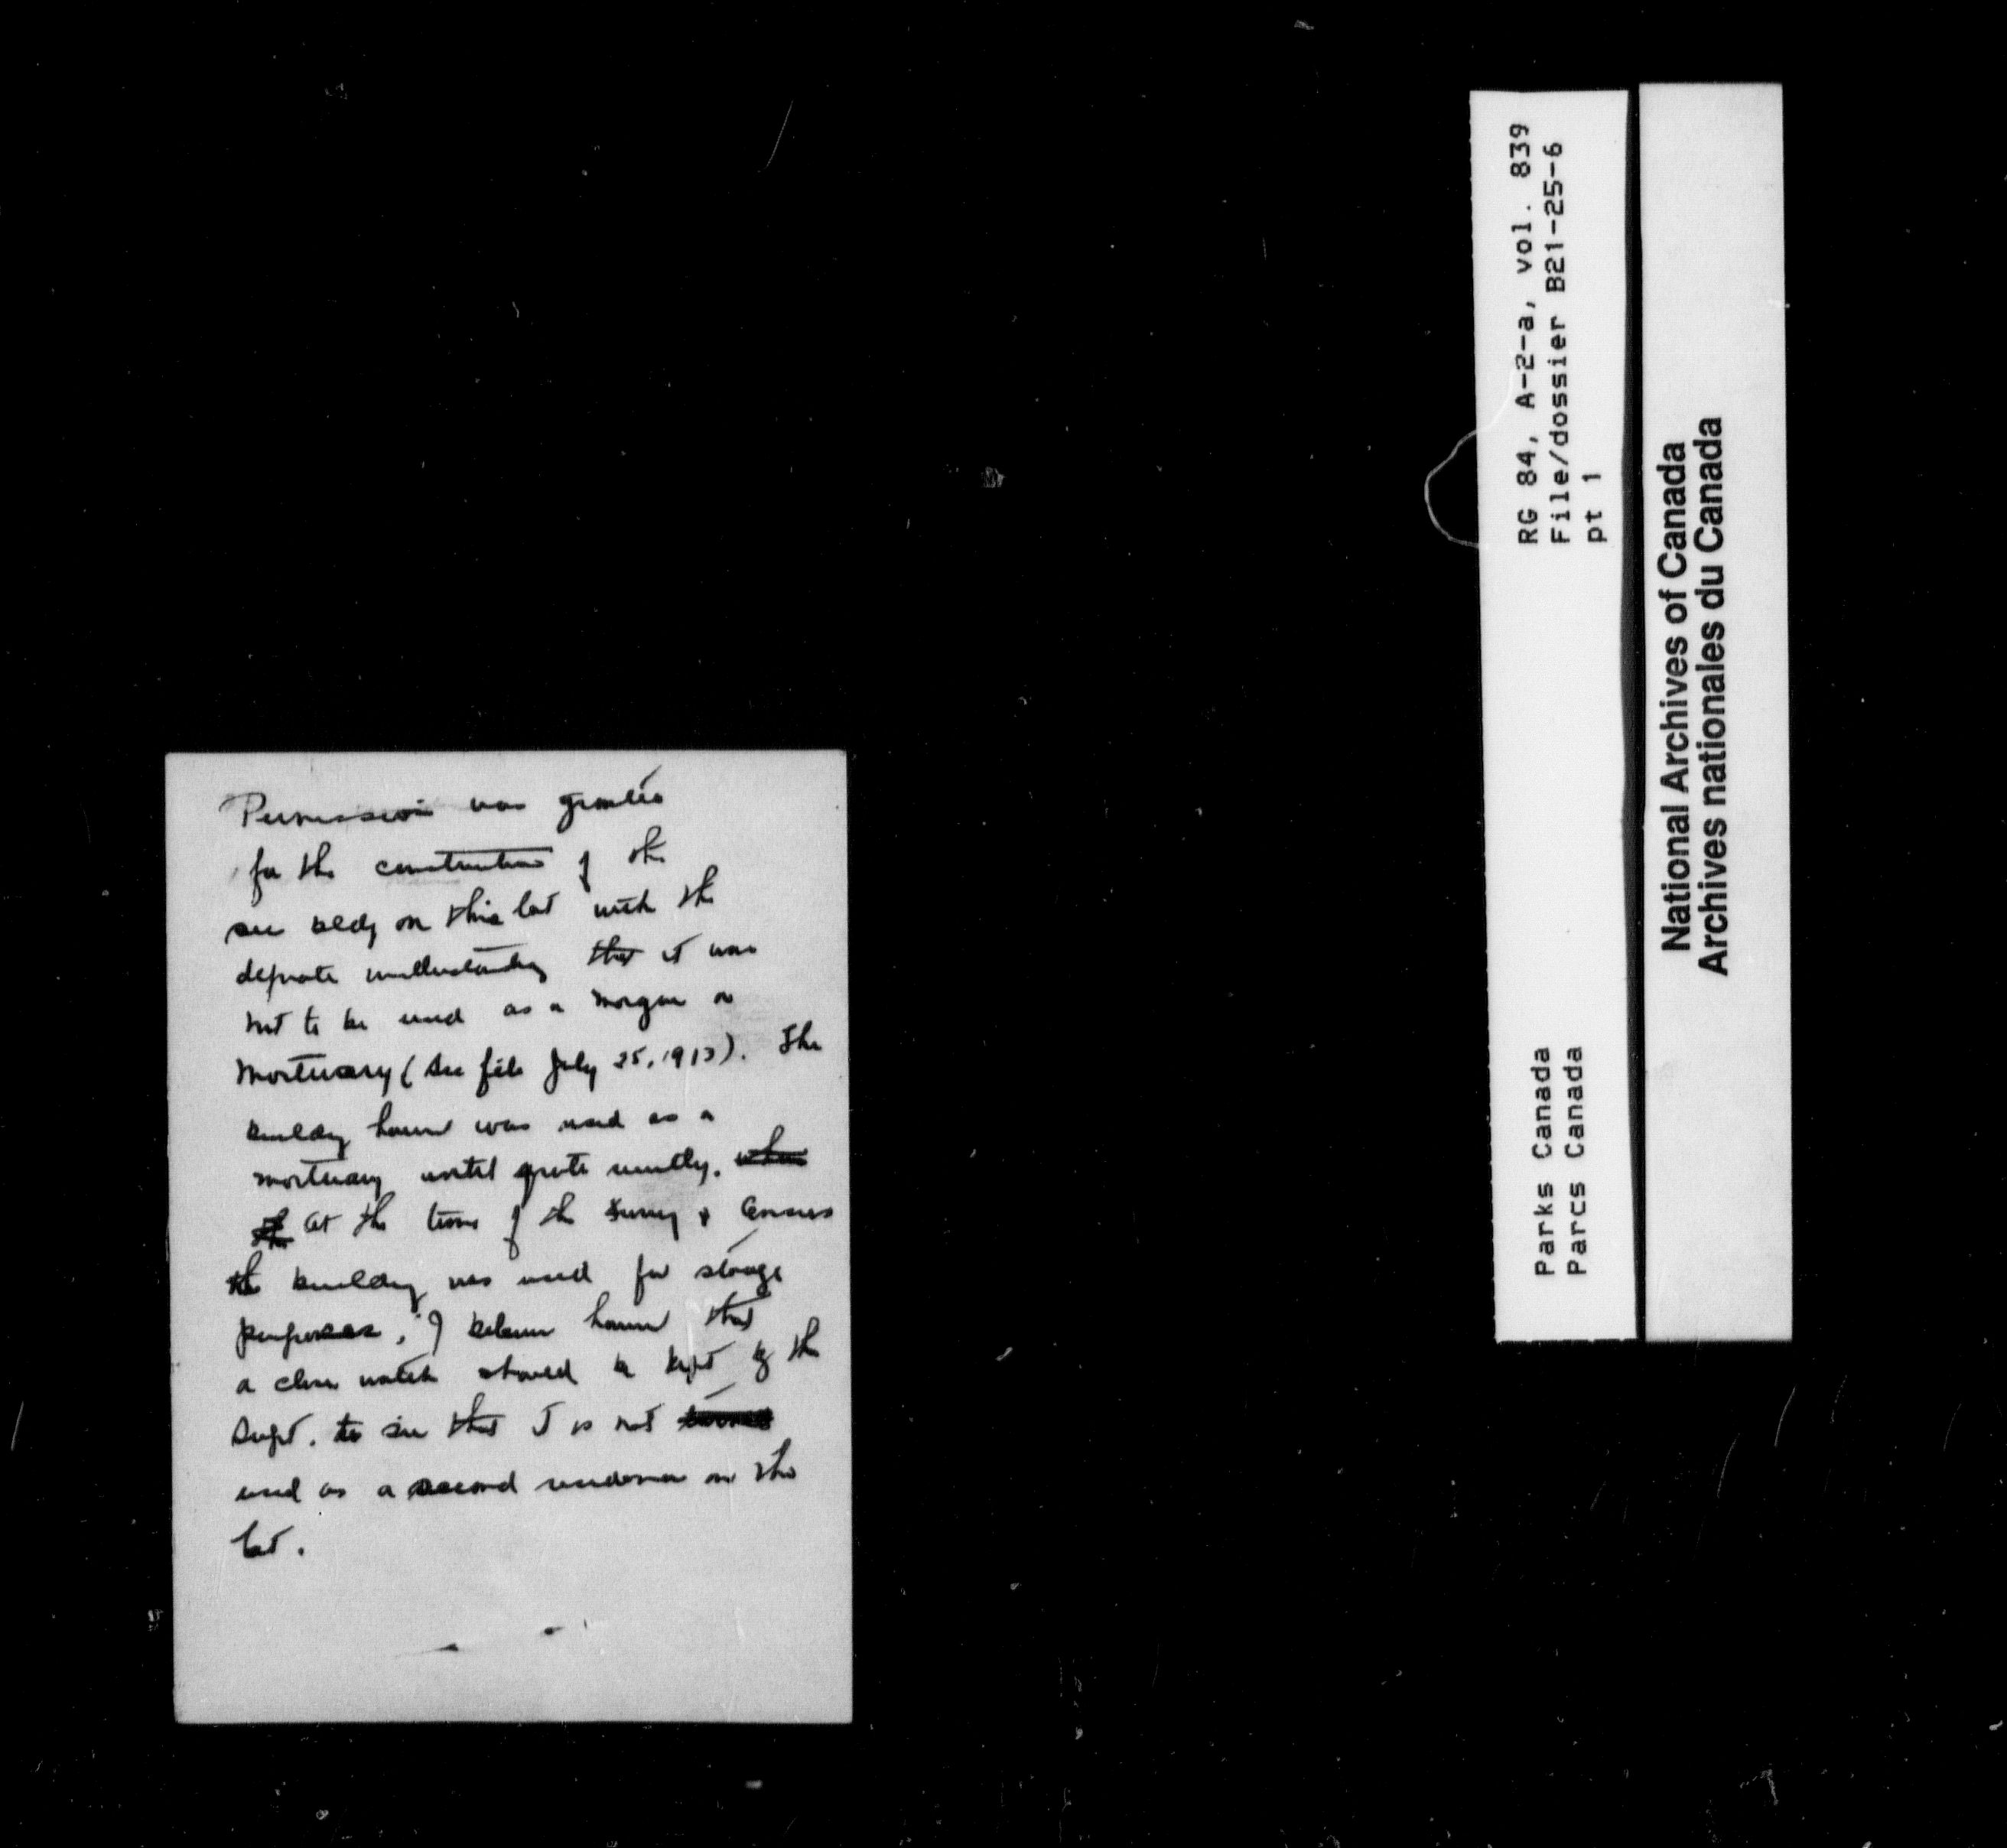 Permission was granted
for the construction of the
sec bldg on this lot with the
definite understanding that it was
not to be used as a morgue or
mortuary (See file July 25, 1913). The
building however was used as a
mortuary until quite recently.
At the time of the Survey & Census
the building was used for storage
purposes, I believe however that
a close watch should be kept by the
Supt. to see that it is not
used as a second residence on the
lot.
RG 84, A-2-a, vol. 839
File/dossier B21-25-6
pt 1
Parks Canada
Parcs Canada
National Archives of Canada
Archives nationales du Canada